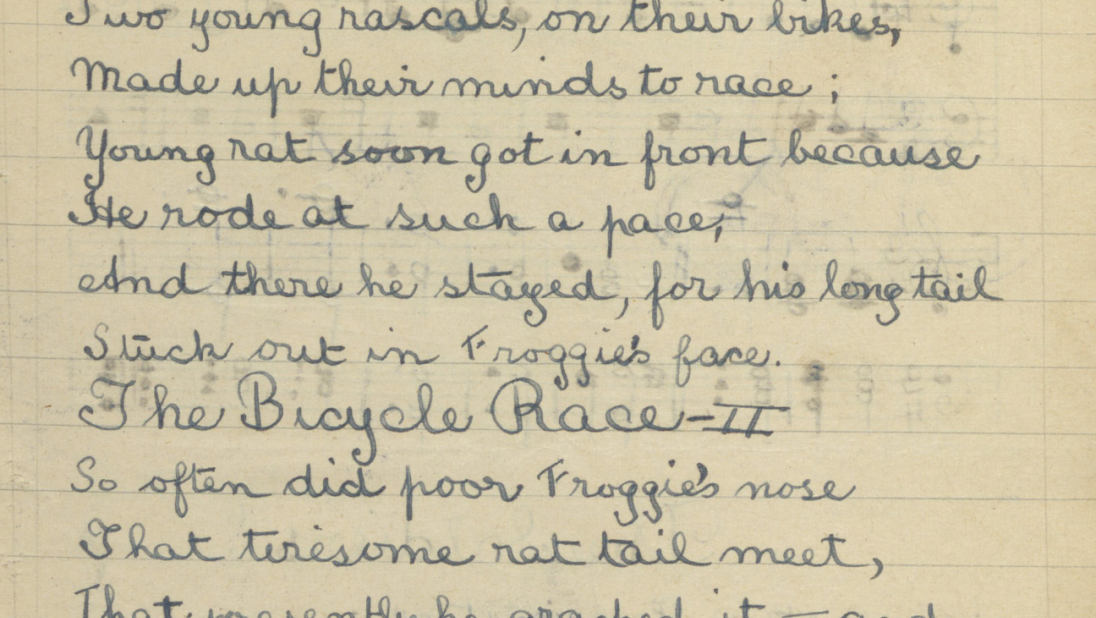 Two young rascals, on their bikes,
Made up their minds to race ;
Young rat soon got in front because
He rode at such a pace;
And there he stayed, for his long tail
Stuck out in Froggie's face.
The Bicycle Race - II
So often did poor Froggie's nose
That teresome rat tail meet,
That presently he grasped it — and